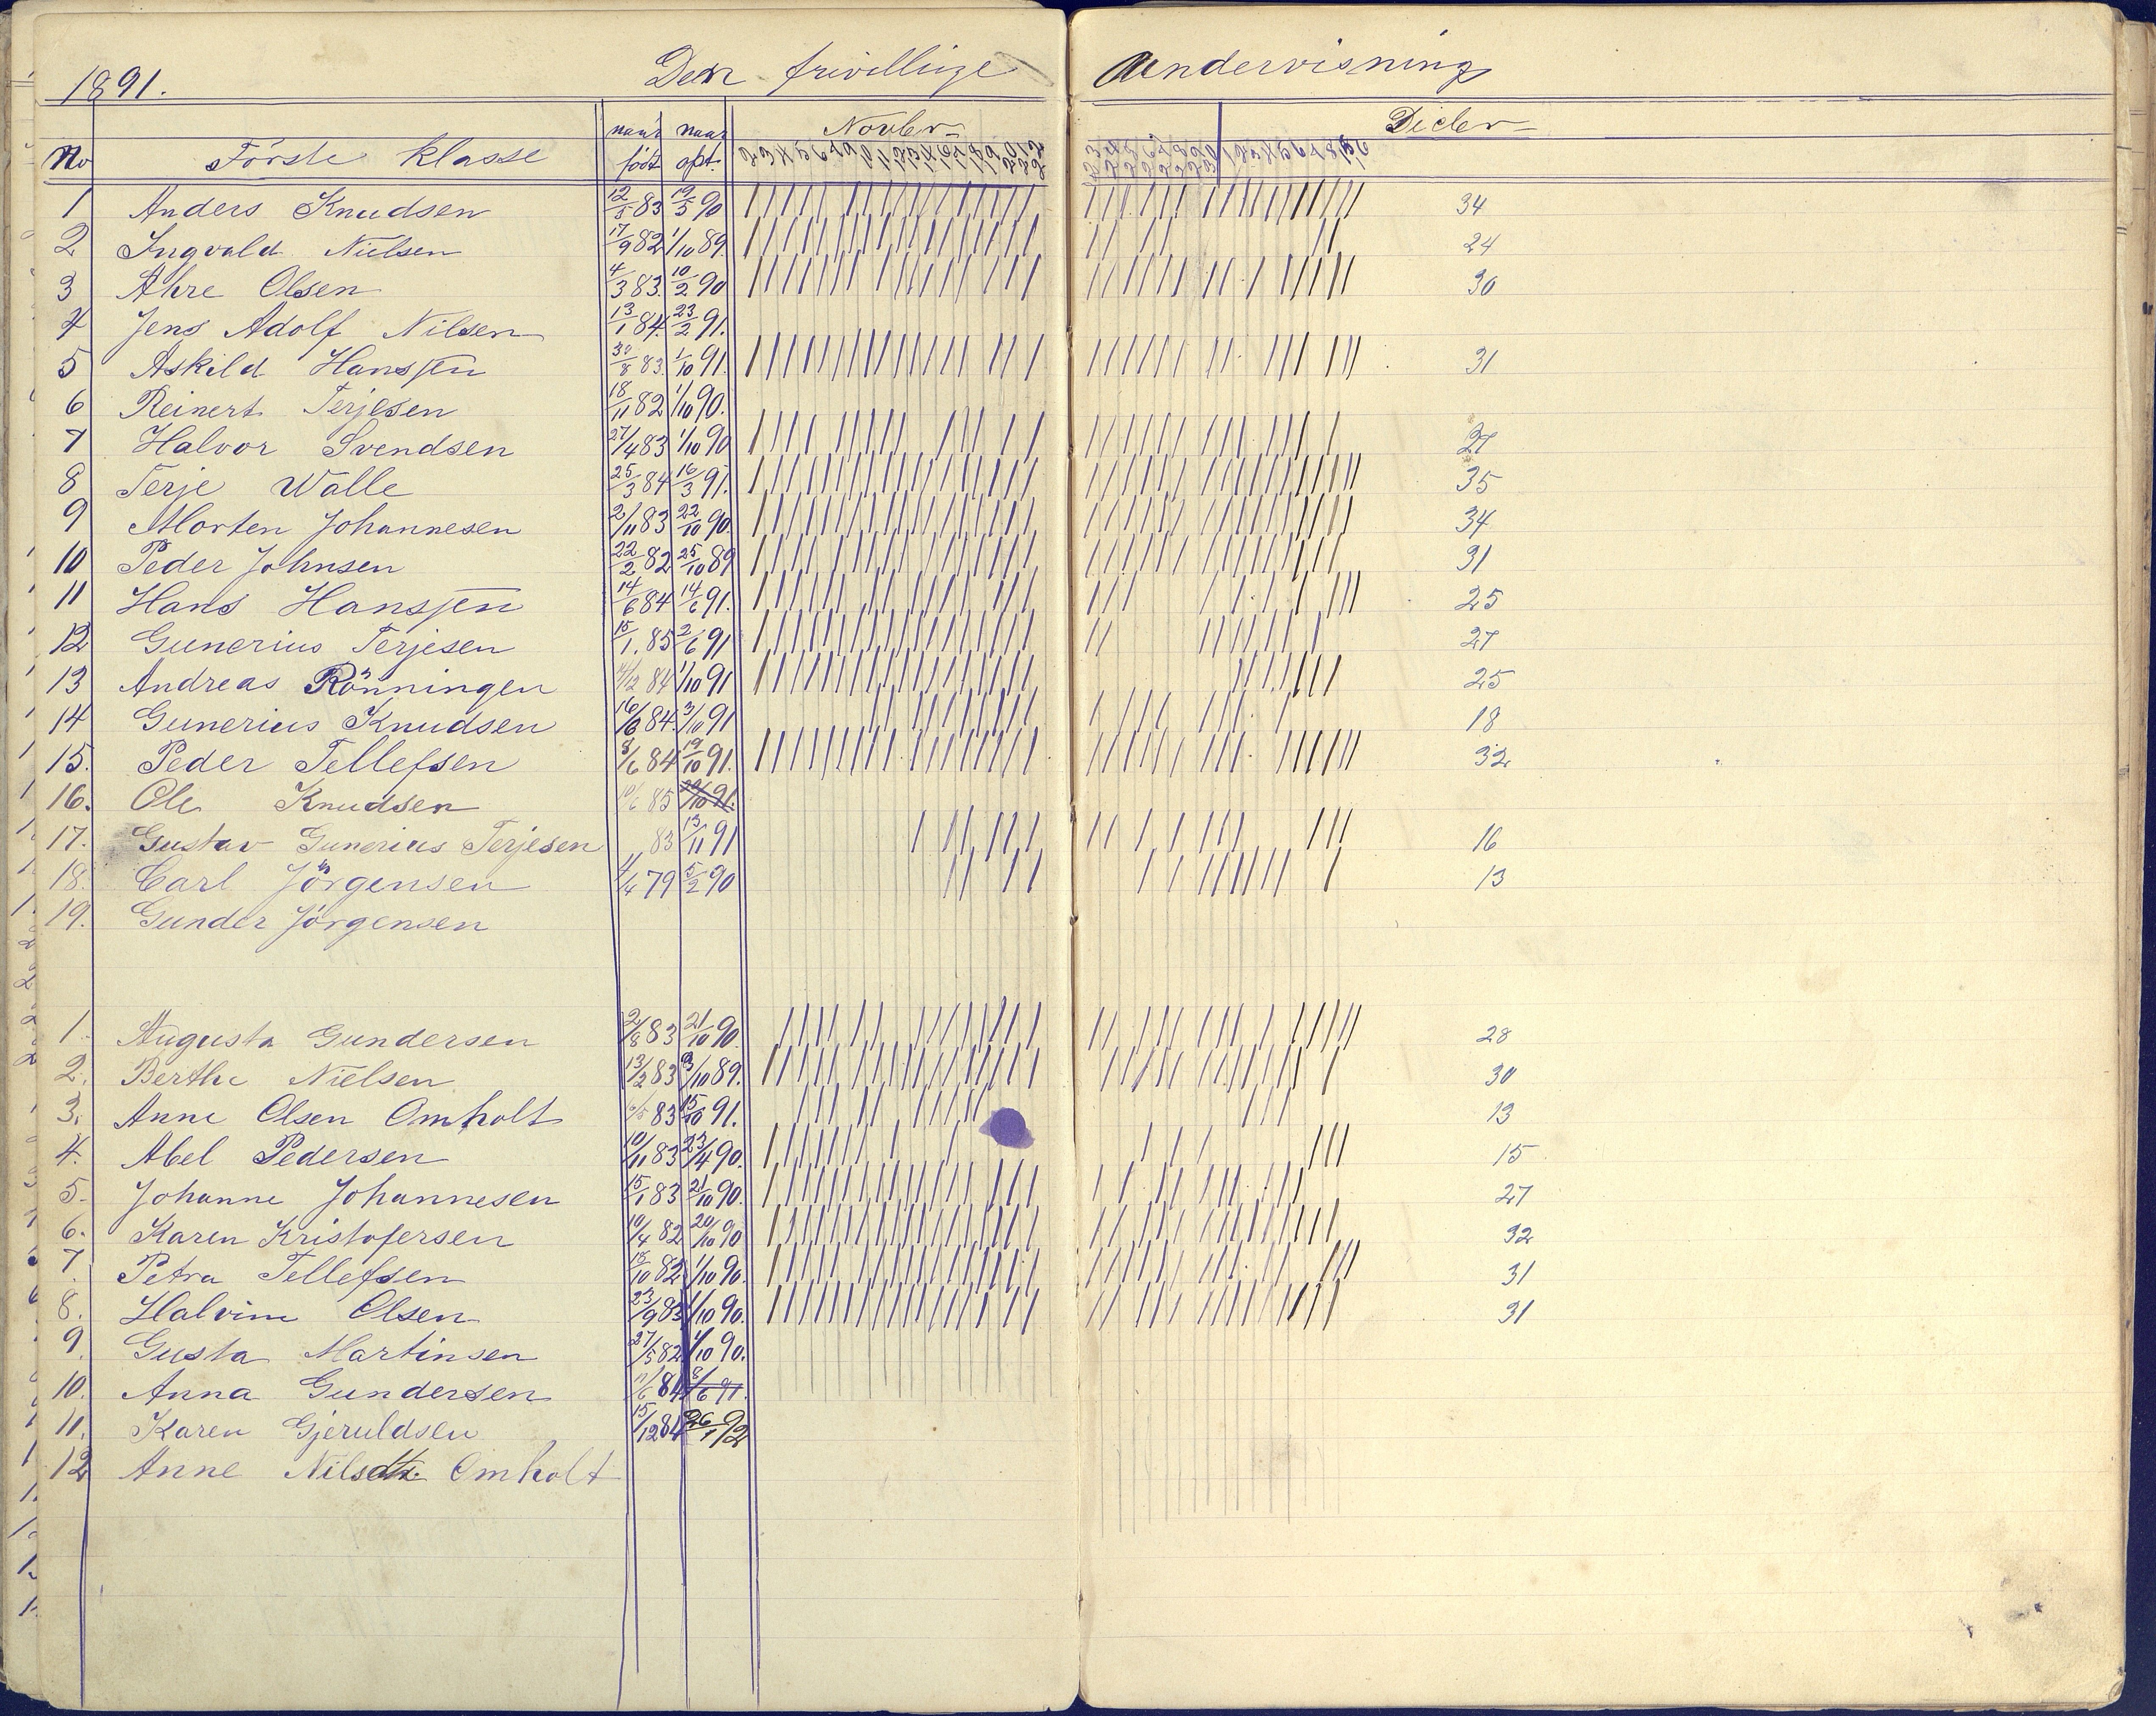 1891. Den frivillige Undervisning
Novber Decbr
No Förste Klasse naar født naar opt.
1 Anders Knudsen 12/5 83 19/5 90 34
2 Ingvald Nielsen 17/9 82 1/10 89. 24
3 Ahre Olsen 4/3 83. 10/2 90 30
4 Jens Adolf Nilsen 13/1 84. 23/2 91.
5 Askild Hanssen 30/8 83. 1/10 91. 31
6 Reinert Terjesen 18/11 82 1/10 90.
7 Halvor Svendsen 27/4 83 1/10 90 27
8 Terje Walle 25/3 84 16/3 91. 35
9 Morten Johannesen 2/11 83 22/10 90. 34
10 Peder Johnsen 22/2 82 25/10 89 31
11 Hans Hanssen 14/6 84 14/6 91. 25
12 Gunerius Terjesen 15/1. 85 2/6 91 27
13 Andreas Rönningen 14/12 84 1/10 91 25
14 Gunerius Knudsen 16/6 84. 3/10 91 18
15. Peder Tellefsen 8/6 84 19/10 91. 32
16. Ole Knudsen 10/6 85
17. Gustav Gunerius Terjesen 83 13/11 91 16
18. Carl Jörgensen 4/4 79 5/2 90 13
19. Gunder Jörgensen
1. Augusta Gundersen 2/8 83 21/10 90. 28
2. Berthe Nielsen 13/2 83 3/10 89. 30
3. Anne Olsen Omholt 83 15/10 91. 13
4. Abel Pedersen 10/11 83 23/4 90. 15
5. Johanne Johannesen 15/1 83 21/10 90. 27
6. Karen Kristofersen 10/4 82 20/10 90 32
7. Petra Tellefsen 18/10 82 1/10 90. 31
8. Halvine Olsen 23/9 83 1/10 90. 31
9. Gusta Martinsen 27/5 82 1/10 90.
10. Anna Gundersen 11/6 84 8/6 91.
11. Karen Gjeruldsen 15/12 84 26/1 92
12 Anne Nilsdtr. Omholt